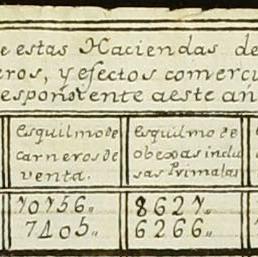 e estas Haciendas de
eros, y efectos comerci
espondiente aeste añ
esquilmo de
carneros de
venta.
esquilmo de
obexas inclu
sas Primalas
10756,,
8627,,
7405,,
6266,,